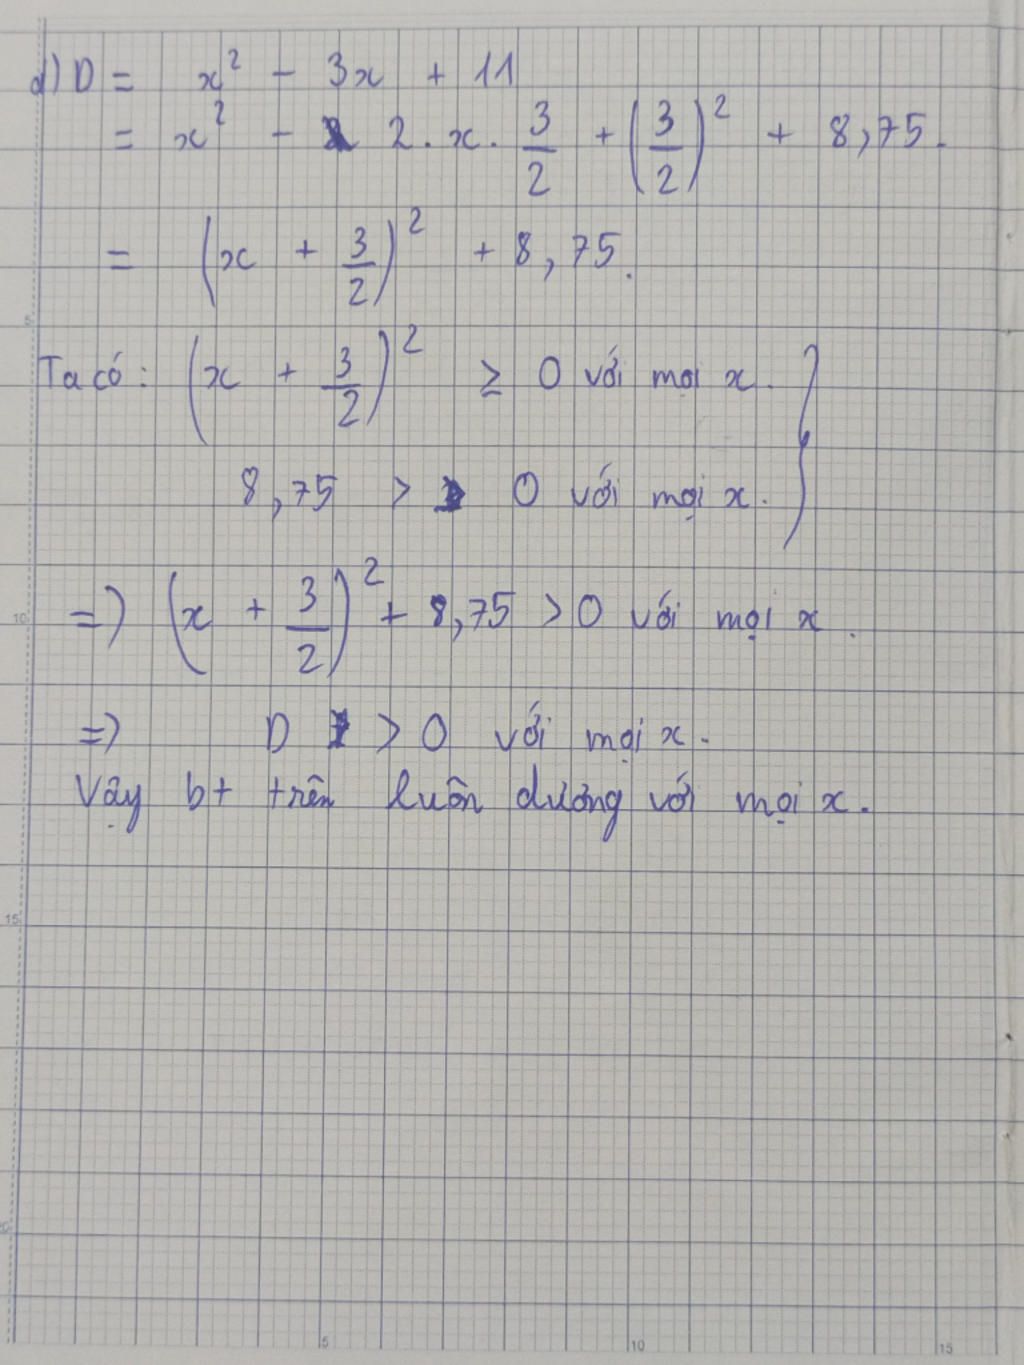 d) D = x² - 3x + 11
= x² - 2. x. 3/2 + (3/2)² + 8,75.
= (x + 3/2)² + 8,75.
Ta có: (x + 3/2)² ≥ 0 với mọi x. }
8,75 > 0 với mọi x.
5
=> (x + 3/2)² + 8,75 > 0 với mọi x.
10
=> D > 0 với mọi x.
Vậy bt trên luôn dương với mọi x.
15
20
5 10 15